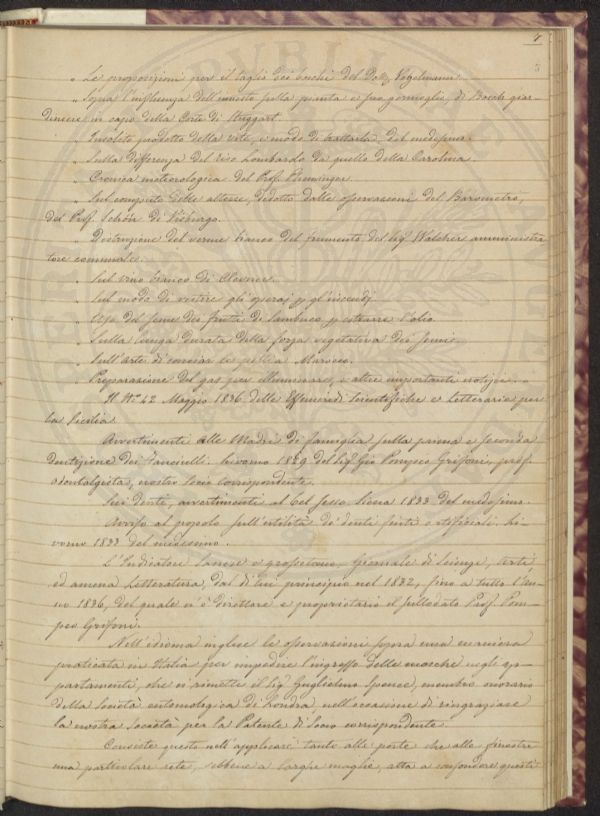 7
5
„ Le proporzioni per il taglio dei boschi del Dott. Vogelmann.
„ Sopra l'influenza dell'innesto sulla pianta e suo germoglio, di Bosch giar-
diniere in capo della Corte di Stuggart.
„ Insolito prodotto della vite, e modo di trattarla del medesimo.
„ Sulla differenza del riso Lombardo da quello della Carolina.
„ Cronica meteorologica del Prof. Plieninger.
„ Sul computo delle altezze, dedotto dalle osservazioni del Barometro,
del Prof. Schön di
„ Distruzione del verme bianco del frumento del Sig. Walcher amministra
tore communale.
„ Sul vino bianco di Clevner.
„ Sul modo di vestire gli operaj pr gl'incendj.
„ Uso del seme dei frutti di sambuco pr estrarre l'olio.
„ Sulla lunga durata della forza vegetativa dei semi.
„ Sull'arte di conciar le pelli a Marocco.
„ Preparazione del gas per illuminare, e altre importanti notizie.
Il N.° 42 Maggio 1836 delle Effemeridi Scientifiche e Letterarie per
la Sicilia.
Avvertimenti alle Madri di famiglia sulla prima e seconda
dentizione dei fanciulli. Livorno 1829 del Sig. Gio Pompeo Grifoni, prof.
odontalgista, nostro socio corrispondente.
Sui denti, avvertimenti al bel sesso Siena 1833 del medesimo.
Avviso al popolo sull'utilità de' denti finti o artificiali. Li-
vorno 1833 del medesimo.
L'Indicatore Sanese e grossetano, giornale di Scienze, arti
ed amena Letteratura, dal di lui principio nel 1832, fino a tutto l'an-
no 1836, del quale n'è direttore e proprietario il sullodato Prof. Pom-
peo Grifoni.
Nell'idioma inglese le osservazioni sopra una maniera
praticata in Italia per impedire l'ingresso delle mosche negli ap-
partamenti, che ci rimette il Sig. Guglielmo Spence, membro onorario
della Società entomologica di Londra, nell'occasione di ringraziare
la nostra Società per la Patente di Socio corrispondente.
Consiste questo nell'applicare tanto alle porte che alle finestre
una particolare rete, sebbene a larghe maglie, atta a confondere questi